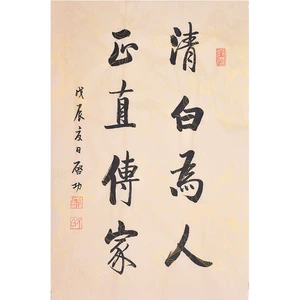 清白為人
正直傳家
戊辰夏日啟功